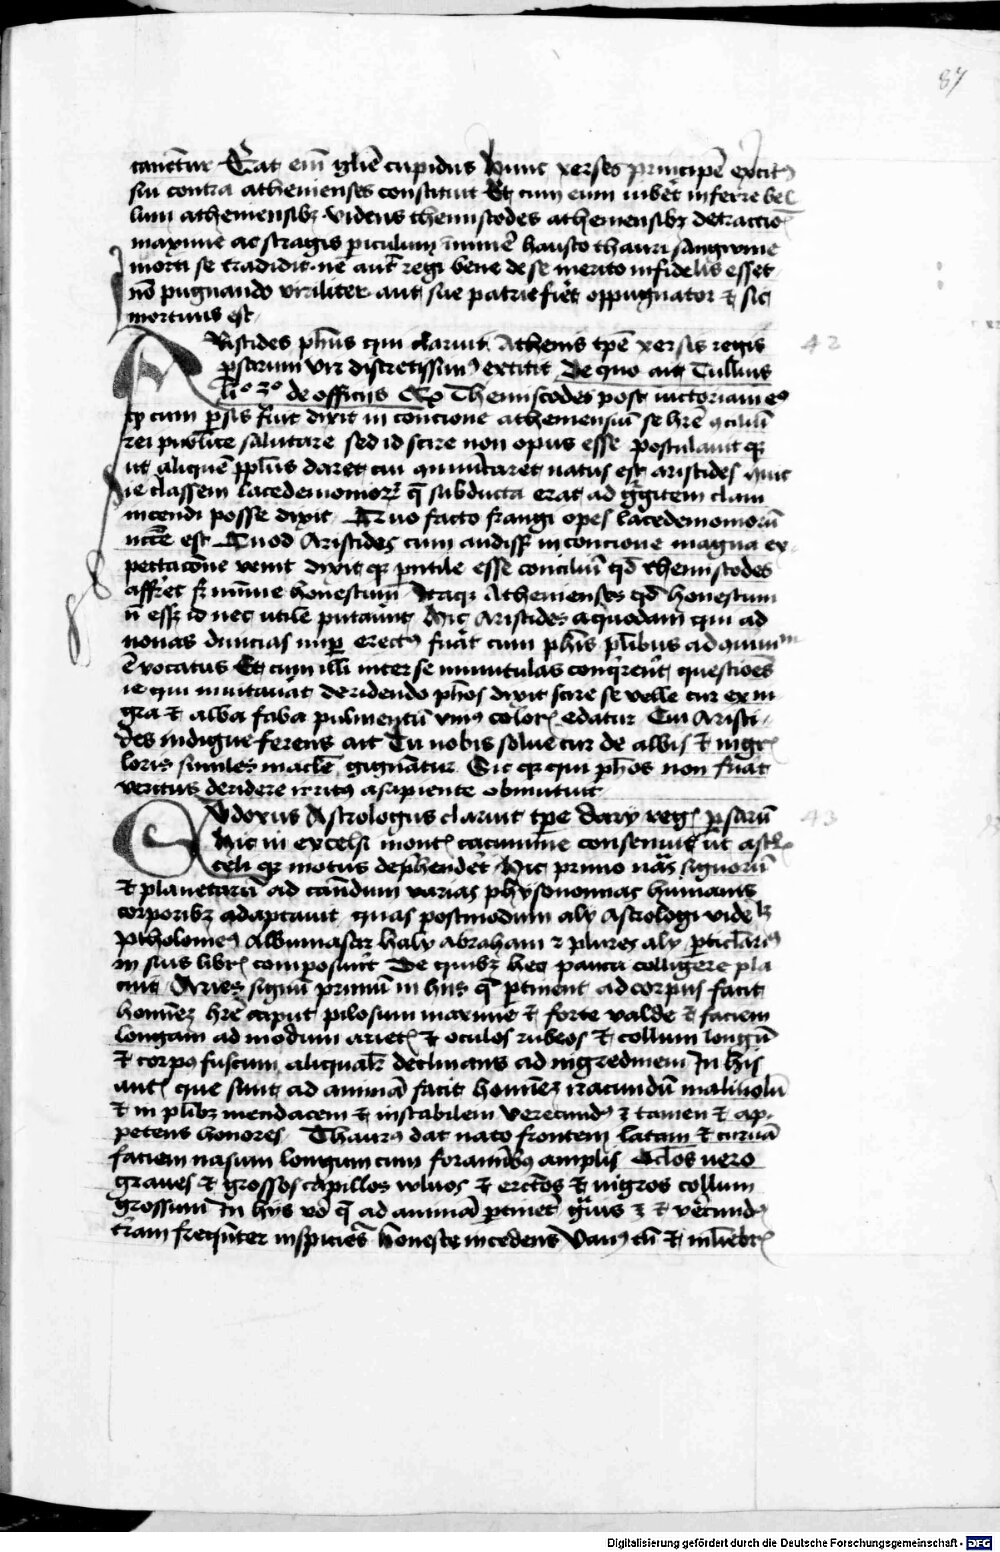 87
canētur Erat eīm gl̄ie cupidus hunc xerses principē exercit9
sui contra athenienses constituit Et cum eum iub̄et inferre bel
lum atheniensib3 videns themistodes atheniensib3 detraccio
maxime ac stragis p̄iculum hausto thauri sangwine
morti se tradidit ne aut̄ regi bene de se merito infidelis esset
nō pugnando viriliter aut sue patrie fīet oppugnator et sic
mortuus est
42
ARistides ph̄us qui claruit Athenis tp̄e xersis regis
p̄sarum vir discretissim9 extitit De quo ait Tullius
li° 3° de officijs Themistodes post victoriam ei9
q̄ cum p̄sis fuit dixit in concione atheniensiū se hr̄e 9ciliū
rei publice salutare sed id scire non opus esse postulauit q3
ut aliquē ppl̄us daret cui cōmunicaret natus est aristides huic
ie classem lacedemonior̄ q̄ subducta erat ad gigitem clam
incendi posse dixit Quo facto frangi opes lacedemoniorū
necē est Quod Aristides cum audiss3 in concione magna ex
pectacōne venit dixit q3 putile esse conciliū qd̄ themistodes
affr̄et s3 minīe honestum Itaq3 Athenienses qd̄ honestum
n̄ ess3 id nec utile putauīnt Hic Aristides a quodam qui ad
nonas diuicias nup erect9 fuāt cum ph̄is pl̄ibus ad 9uiuiū
ē vocatus Et cum illi inter se minutulas conq̄rent questiōes
ie qui inuitauāt deridendo ph̄os dixit scire se velle cur ex ni
gra et alba faba pulmentū vni9 color̄ edatur Cui Aristi
des indigne ferens ait Tu nobis solue cur de albis et nigr̄
loris similes macl̄e gignātur Sic q3 qui ph̄os non fuāt
veritus deridere irrit9 a sapiente obmutuit
43
EVdoxus Astrologus claruit tp̄e darij reḡ p̄sarū
Hic in excelsi mont̄ cacumine consenuit ut astr̄
celi q3 motus dep̄henderet Hic primo nās signorū
et planetarū ad cāndum varias physonomias humanis
corporib3 adaptauit quas postmodum alij Astrologi vide l3
ptholome9 Albumasar haly abraham et plures alij p̄ticl̄arit9
in suis libr̄ composuīt De quib3 hec pauca colligere pla
cuit Aries signū primū in hijs q̄ p̄tinent ad corpus facit
homiēz hr̄e caput pilosum maxime et forte valde et faciem
longam ad modum ariet̄ et oculos rubeos et collum longū
et corp9 fuscum aliqual̄ declinans ad nigredinem In his
aut̄ que sunt ad animā facit homiēz iracundū maliuolū
et in pl̄ib3 mendacem et instabilem verecund9 3 tamen et ap
petens honores Thaur9 dat nato frontem latam et curuā
faciem nasum longum cum foramīb9 amplis Oclōs vero
graues et grossos capillos vluos et erectōs et nigros collum
grossum In hijs vō q̄ ad animā p̄tinet g̈uis 3 et ver̄cund9
tr̄am freqn̄ter inspiciēs honeste incedens Van9 tn̄ et mliebr̄
Digitalisierung gefördert durch die Deutsche Forschungsgemeinschaft - DFG